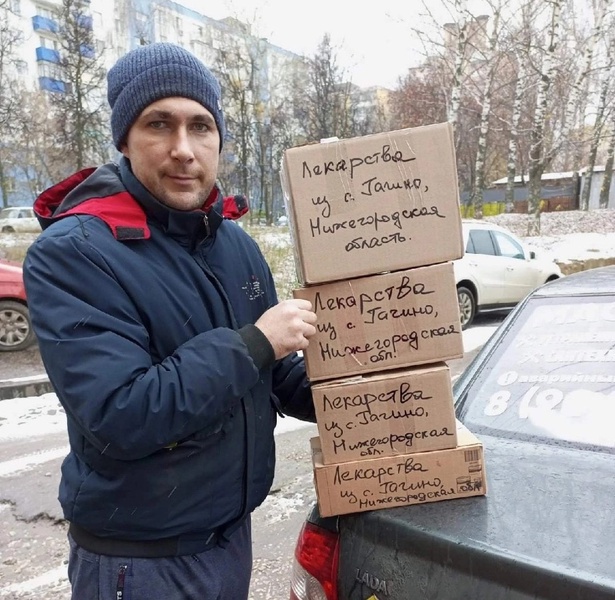 Лекарства
из с. Гагино,
Нижегородская
область.
Лекарства
из с. Гагино,
Нижегородская
обл.
Лекарства
из с. Гагино,
Нижегородская
обл.
Лекарства
из с. Гагино,
Нижегородская обл.
8 (
LADA